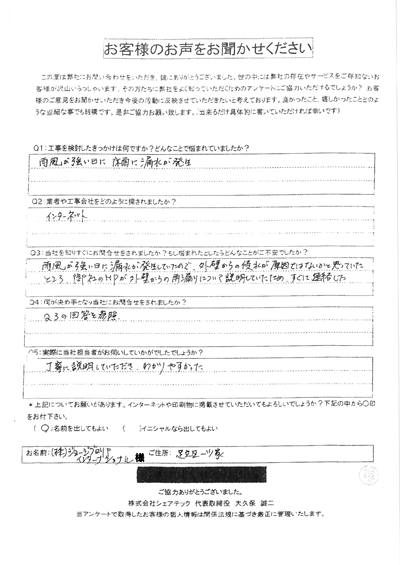 お客様のお声をお聞かせください
この度は弊社にお問い合わせをいただき、誠にありがとうございました。世の中には弊社の存在やサービスをご存知ないお
客様が沢山いらっしゃいます。その方たちに弊社をよく知っていただくためのアンケートにご協力いただけるでしょうか？ お客
様のご意見をお聞かせいただき今後の活動に反映させていただきたいと考えております。良かったこと、嬉しかったことどのよ
うな些細な事でも結構です。是非ご協力お願い致します。（出来るだけ具体的に書いていただければ幸いです）
Q1：工事を検討したきっかけは何ですか？どんなことで悩まれていましたか？
雨風が強い日に 床面に漏水が発生
Q2：業者や工事会社をどのように探されましたか？
インターネット
Q3：当社を知りすぐにお問合せをされましたか？もし悩まれたとしたらどんなことがご不安でしたか？
雨風が強い日に漏水が発生していたので、外壁からの浸水が原因ではないかと思っていた
ところ、御社のHPが外壁からの雨漏りについて説明していたため、すぐに連絡した
Q4：何が決め手となり当社にお問合せをされましたか？
Q3の回答を参照
Q5：実際に当社担当者がお伺いしていかがでしたでしょうか？
丁寧に説明していただき、わかりやすかった
＊上記についてお願いがあります。インターネットや印刷物に掲載させていただいてもよろしいでしょうか？下記の中から〇印
をお付下さい。
（〇）名前を出してもよい （ ）イニシャルなら出してもよい
お名前：(株) インターナショナル 様 ご住所：
ご協力ありがとうございました。
株式会社シェアテック 代表取締役 大久保 誠二
※アンケートで取得したお客様の個人情報は関係法規に基づき厳正に管理いたします。